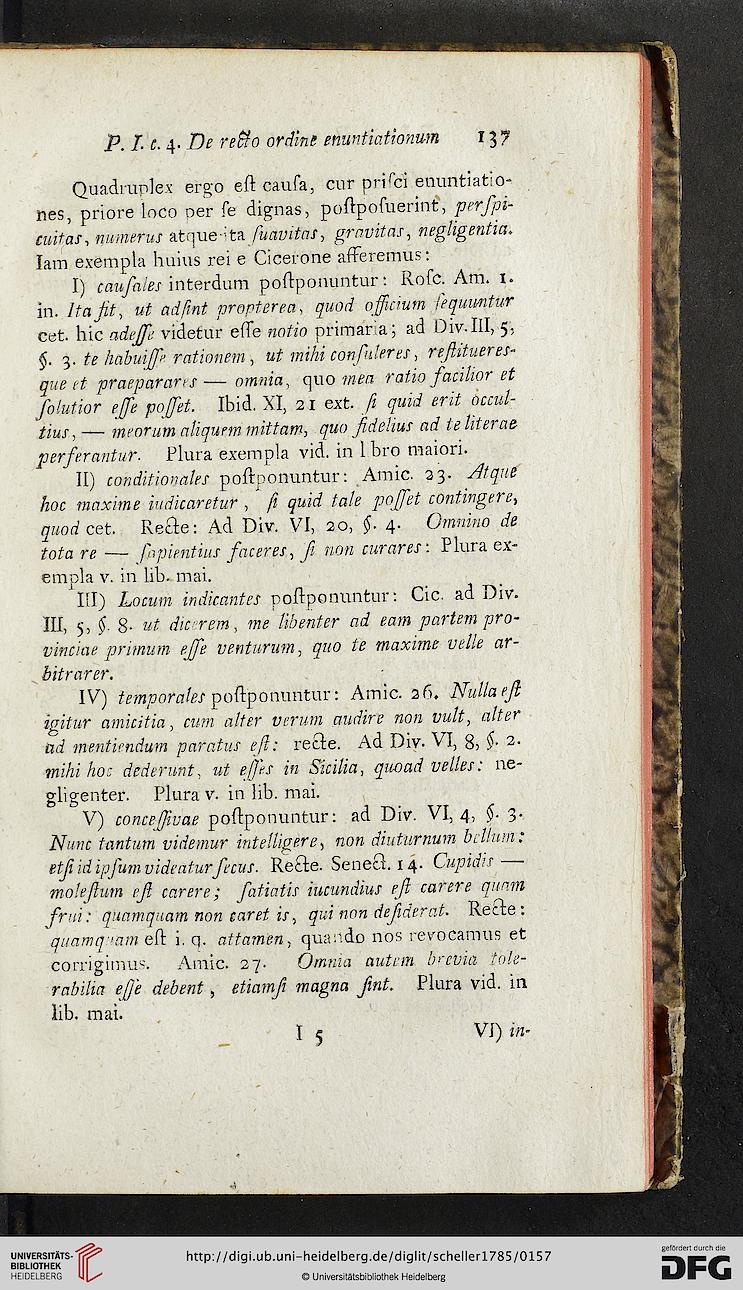 P. I. c. 4. De recto ordine enuntiationum 137
Quadruplex ergo eſt cauſa, cur priſci enuntiatio-
nes, priore loco per ſe dignas, poſtpoſuerint, perſpi-
cuitas, numerus atque ita ſuavitas, gravitas, negligentia.
Iam exempla huius rei e Cicerone afferemus:
I) cauſales interdum poſtponuntur: Roſc. Am. 1.
in. Ita fit, ut adſint propterea, quod officium ſequuntur
cet. hic adeſſe videtur eſſe notio primaria; ad Div. III, 5,
§. 3. te habuiſſe rationem, ut mihi conſuleres, reſtitueres-
que et praeparares — omnia, quo mea ratio facilior et
ſolutior eſſe poſſet. Ibid. XI, 21 ext. ſi quid erit occul-
tius, — meorum aliquem mittam, quo fidelius ad te literae
perferantur. Plura exempla vid. in l bro maiori.
II) conditionales poſtponuntur: Amic. 23. Atque
hoc maxime iudicaretur, ſi quid tale poſſet contingere,
quod cet. Recte: Ad Div. VI, 20, §. 4. Omnino de
tota re — ſapientius faceres, ſi non curares: Plura ex-
empla v. in lib. mai.
III) Locum indicantes poſtponuntur: Cic. ad Div.
III, 5, §. 8. ut dicerem, me libenter ad eam partem pro-
vinciae primum eſſe venturum, quo te maxime velle ar-
bitrarer.
IV) temporales poſtponuntur: Amic. 26. Nulla eſt
igitur amicitia, cum alter verum audire non vult, alter
ad mentiendum paratus eſt: recte. Ad Div. VI, 8, §. 2.
mihi hoc dederunt, ut eſſes in Sicilia, quoad velles: ne-
gligenter. Plura v. in lib. mai.
V) conceſſivae poſtponuntur: ad Div. VI, 4, §. 3.
Nunc tantum videmur intelligere, non diuturnum bellum:
etſi id ipſum videatur ſecus. Recte. Senect. 14. Cupidis —
moleſtum eſt carere; ſatiatis iucundius eſt carere quam
frui: quamquam non caret is, qui non deſiderat. Recte:
quamquam eſt i. q. attamen, quando nos revocamus et
corrigimus. Amic. 27. Omnia autem brevia tole-
rabilia eſſe debent, etiamſi magna ſint. Plura vid. in
lib. mai.
I 5 VI) in-
UNIVERSITÄTS-
BIBLIOTHEK
HEIDELBERG
http://digi.ub.uni-heidelberg.de/diglit/scheller1785/0157
© Universitätsbibliothek Heidelberg
gefördert durch die
DFG